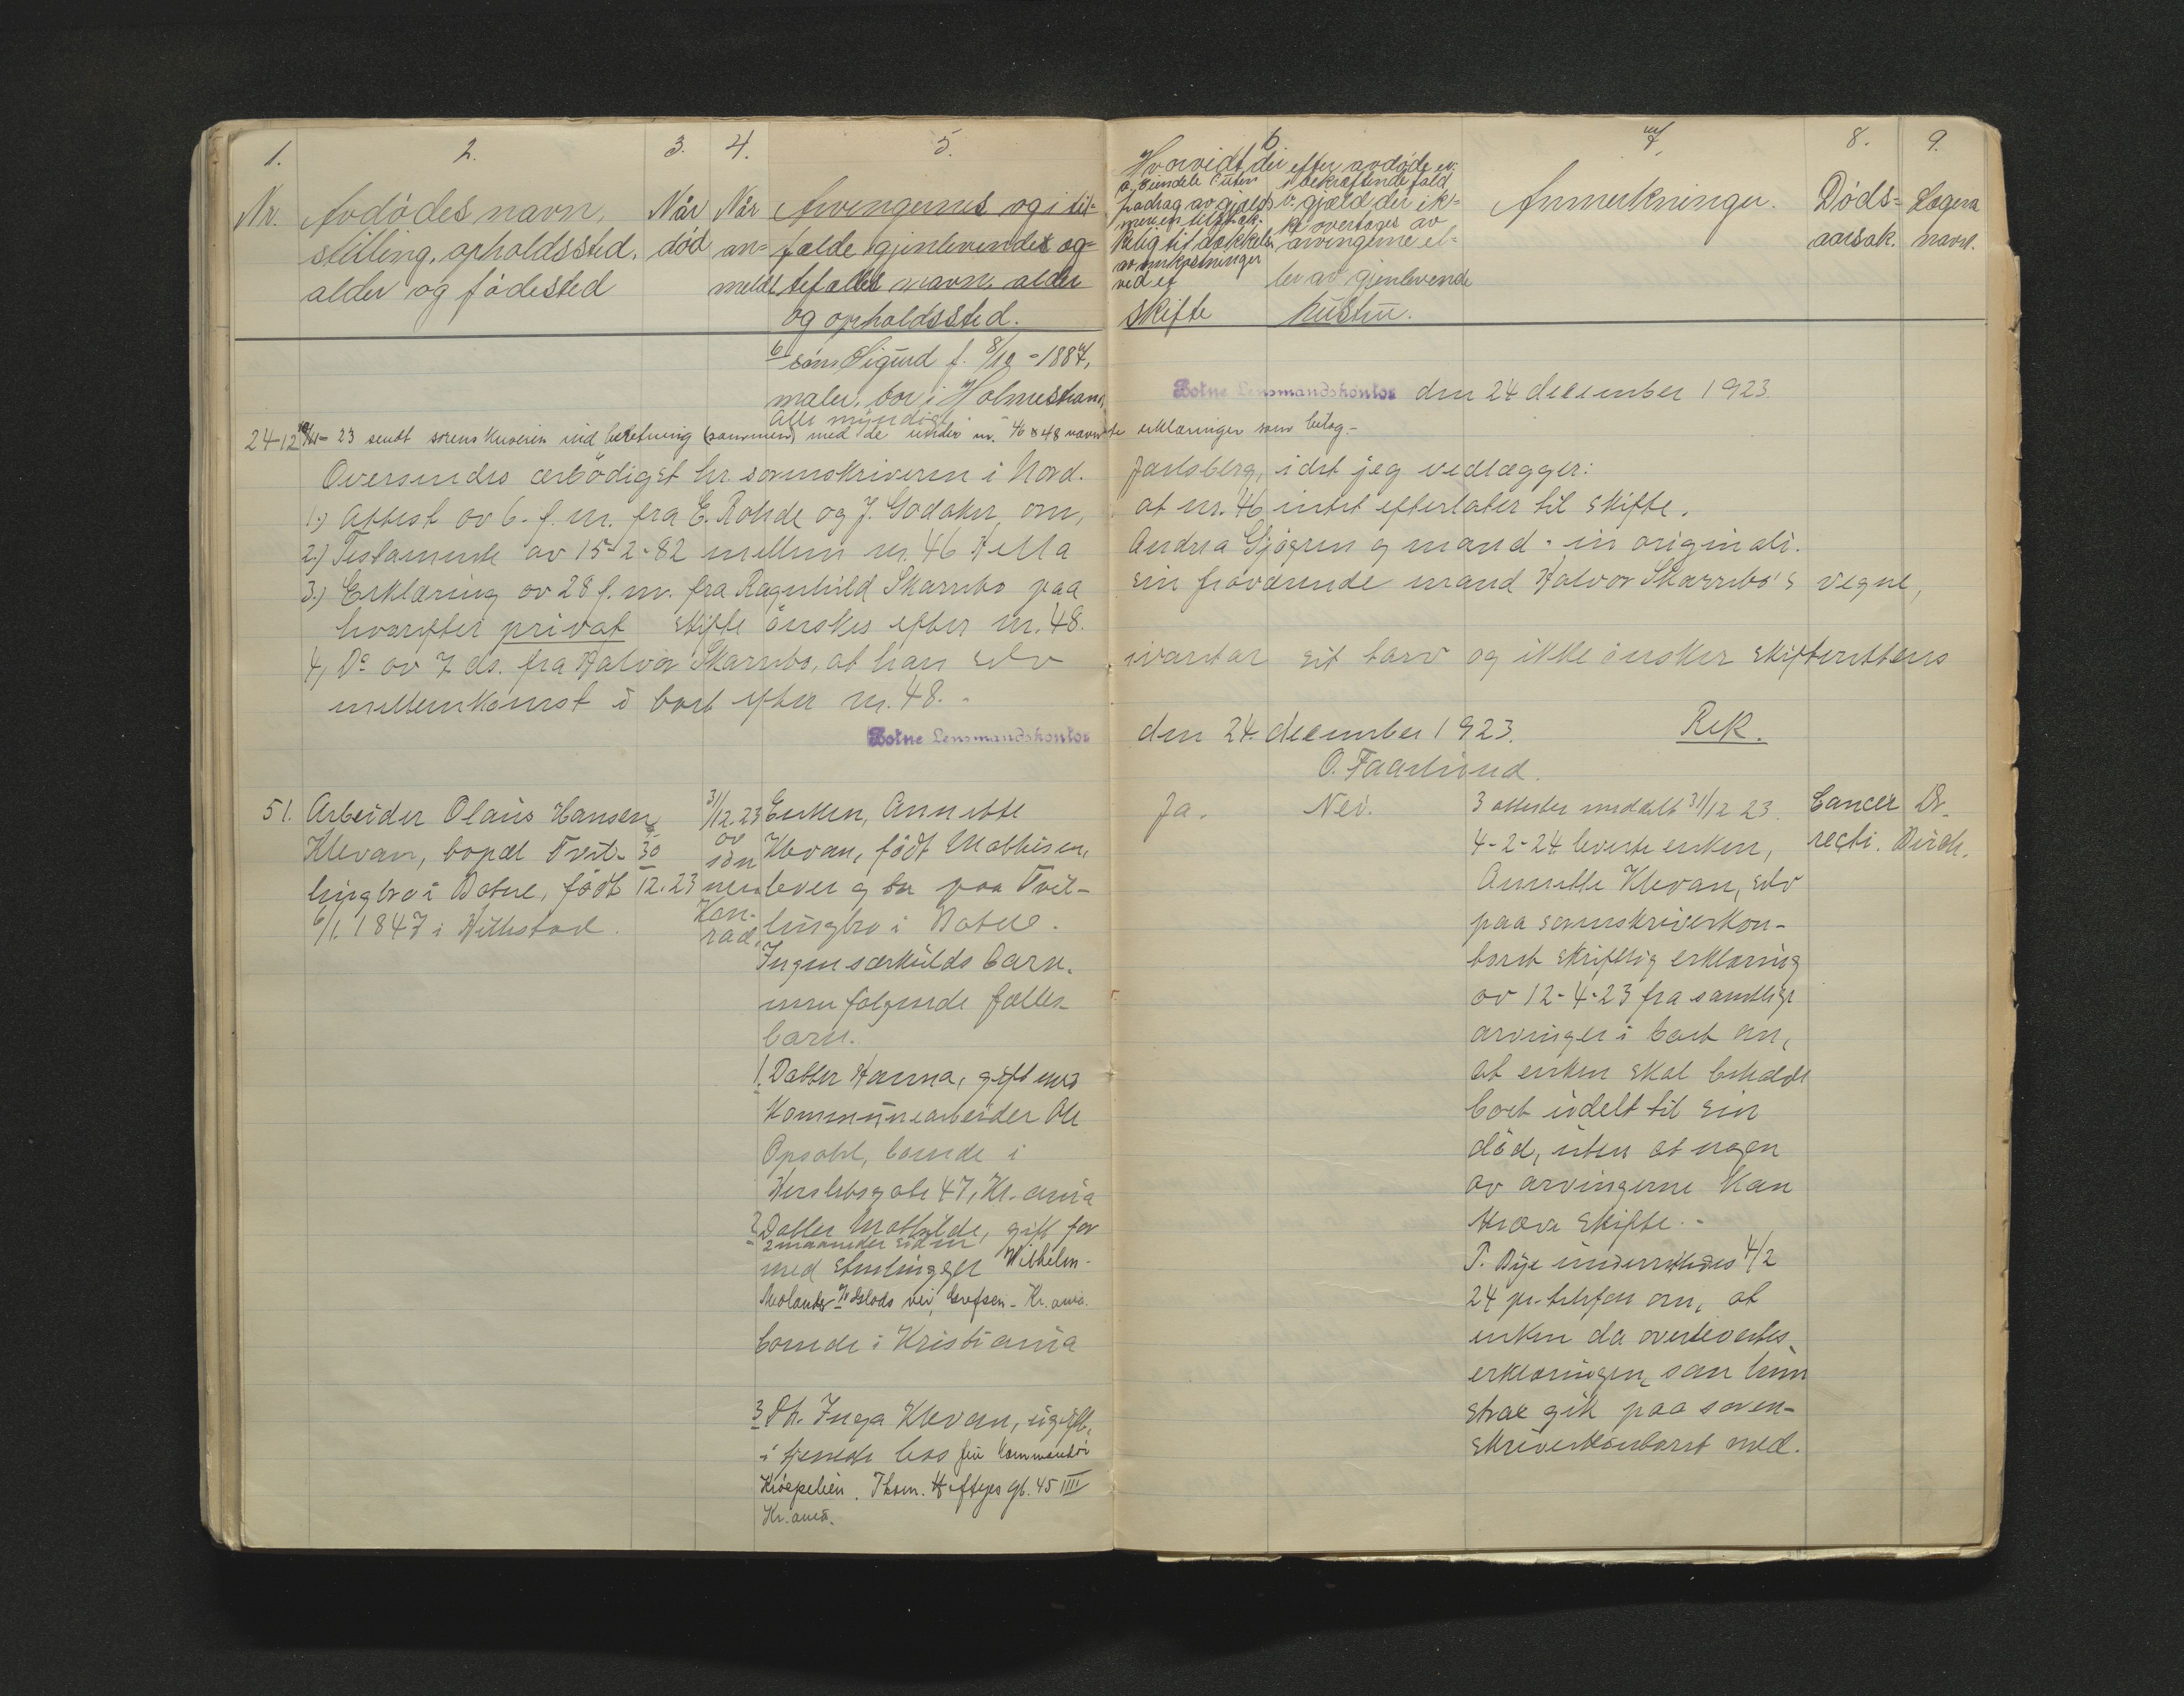 1. 2. 3. 4. 5. 6. 7. 8. 9.
Nr. Avdødes navn, stilling, opholdssted, alder og fødested
Når død
Når anmeldt
Arvingernes og i tilfælde gjenlevendes ogtefælles navn, alder
og opholdssted.
Hvorvidt der efter avdøde er:
a. eiendele uten fradrag av gjæld
til dækkelse av omkostninger ved et
skifte
b. gjæld der ikke overtages av
arvingerne eller av gjenlevende
hustru.
Anmerkninger.
Døds-
aarsak.
Lægens
navn.
6 søn Sigurd f. 8/10 - 1887,
maler, bor i Holmestrand,
Alle myndige.
Botne Lensmandskontor den 24 december 1923.
24-12-23 sendt sorenskriveren indberetning (sammen) med de under nr. 46 & 48 nævnte erklæringer som bilag.-
Oversendes ærbødigst hr. sorenskriveren i Nord- Jarlsberg, idet jeg vedlægger:
1.) Attest av 6. f.m. fra E. Rohde og J. Godaker om, at nr. 46 intet efterlater til skifte.
2) Testamente av 15-2-82 mellem nr. 46 Andrea Sjøgren og mand - in originali.
3.) Erklæring av 28 f.m. fra Ragnhild Skarnbo paa sin fraværende mand Halvor Skarnbo's vegne,
hvorefter privat skifte ønskes efter nr. 48.
4, Do av 7 ds. fra Halvor Skarnbo, at han selv ivaretar sit tarv og ikke ønsker skifterettens
mellemkomst i boet efter nr. 48. -
Botne Lensmandskontor den 24. december 1923. Rek.
O. Faarlund.
51. Arbeider Olaus Hansen
Klevan, bopæl Tveit-
lingbro i Botne, født
6/1 1847 i Hillestad.
30
12.23
31/12.23
av
søn
nen
Kon-
rad,
Enken, Annette
Klevan, født Mathisen,
lever og bor paa Tveit-
lingbro i Botne.
Ingen særkulds barn.
men følgende fælles
barn.
1. Datter Hanna, gift med
Kommunearbeider Ole
Opsahl, boende i
Herslebsgate 47, Kr.ania
2 Datter Mathilde, gift for
2 maaneder siden
med stenhugger Wilhelm
Molander vei, Grefsen - Kr.ania.
boende i Kristiania
3 Dt. Inga Klevan, ugift,
i tjeneste hos fru kommandør
Krøepelien. Thom. Heftyes gt. 45 IIII
Kr.ania.
Ja. Nei.
3 attester meddelt 31/12 23.
4-2-24 leverte enken,
Annette Klevan, selv
paa sorenskriverkon-
toret skriftlig erklæring
av 12-4-23 fra samtlige
arvinger i boet om,
at enken skal beholde
boet udelt til sin
død, uten at nogen
av arvingerne kan
kræve skifte. -
P. Bye underrettedes 4/2
24 pr. telefon om, at
enken da overlevertes
erklæringen, som hun
strax gik paa soren-
skriverkontoret med.
Cancer
recti.
Dr.